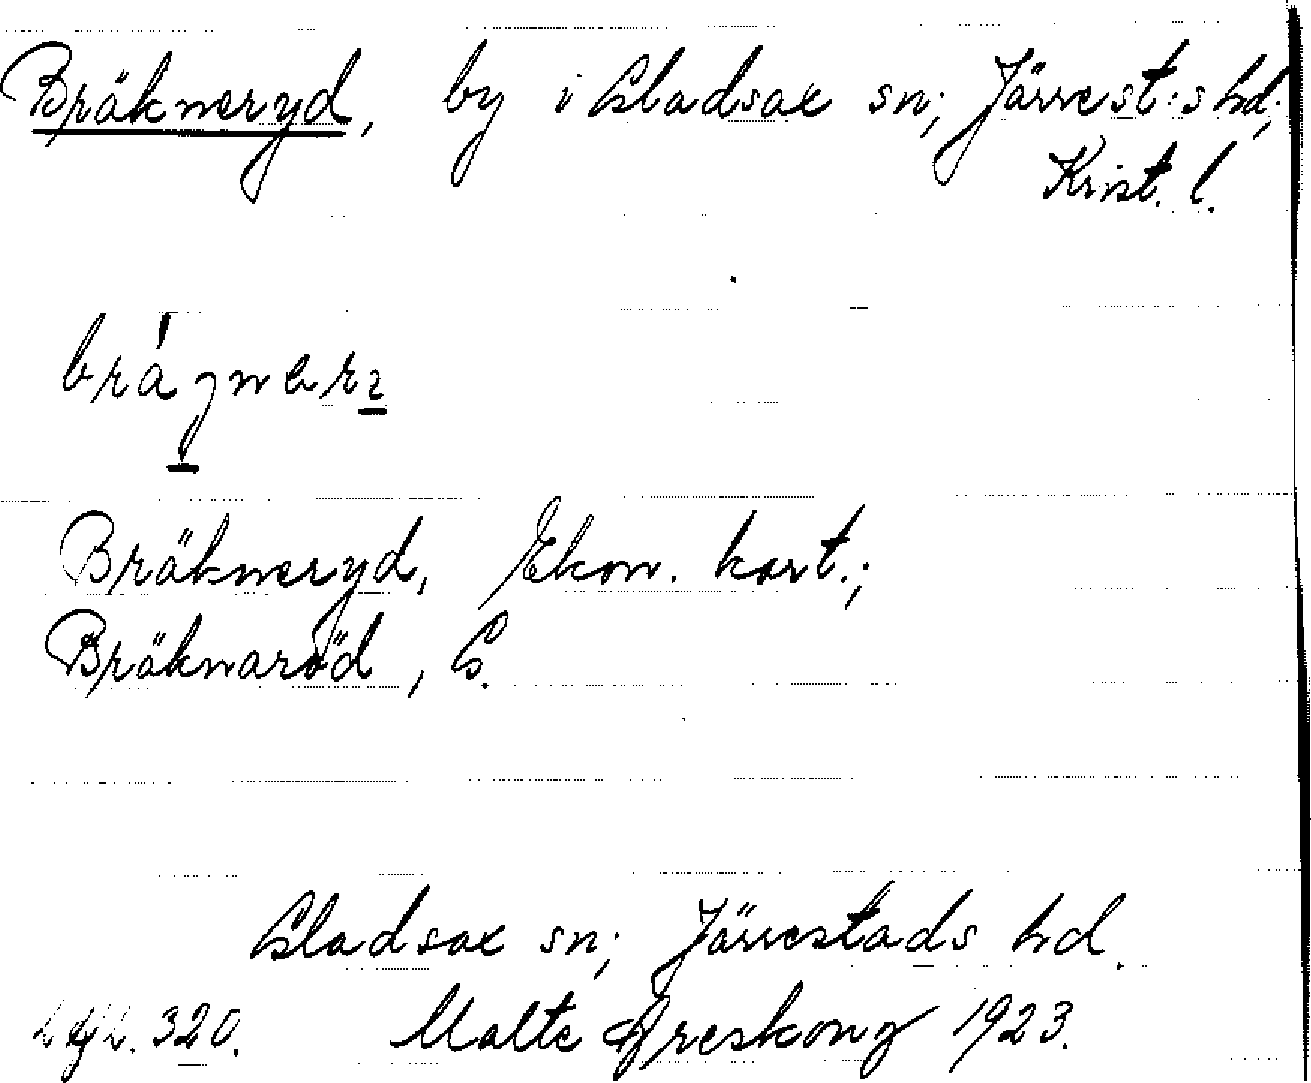 Bräkneryd, by i Gladsax sn; Järrest:s hd;
Krist. l.
Bräkneryd, Ekon. kart.;
Bräknaröd, G.
Gladsax sn; Järrestads hd.
320. Malte Areskoug 1923.